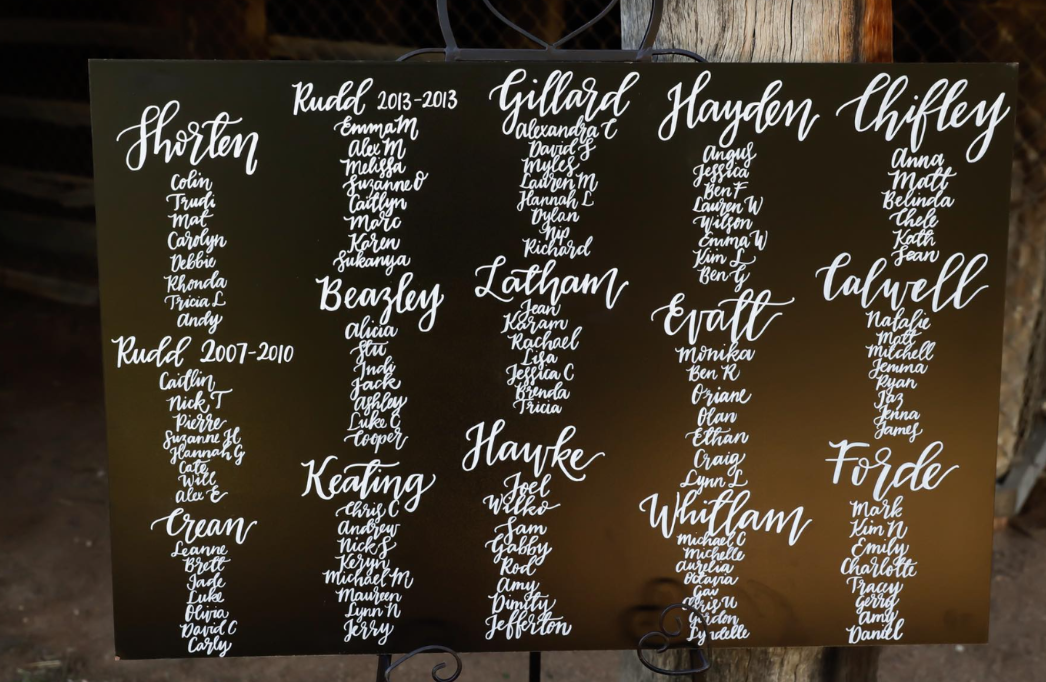 Shorten
Colin
Trudi
Mat
Carolyn
Debbie
Rhonda
Tricia L
Andy
Rudd 2007-2010
Caitlin
Nick T
Pierre
Suzanne H
Hannah G
Cate
Will
Alex E
Crean
Leanne
Brett
Jade
Luke
Olivia
David C
Carly
Rudd 2013-2013
Emma M
Alex M
Melissa
Suzanne O
Caitlyn
Marc
Karen
Sukanya
Beazley
Alicia
Stu
Judi
Jack
Ashley
Luke C
Cooper
Keating
Chris C
Andrew
Nick S
Keryn
Michael M
Maureen
Lynn N
Jerry
Gillard
Alexandra C
David S
Myles
Lauren M
Hannah L
Dylan
Nip
Richard
Latham
Jean
Karam
Rachael
Lisa
Jessica C
Brenda
Tricia
Hawke
Joel
Wilko
Sam
Gabby
Rod
Amy
Dimity
Jefferton
Hayden
Angus
Jessica
Ben F
Lauren W
Wilson
Emma W
Kim L
Ben G
Evatt
Monika
Ben R
Oriane
Olan
Ethan
Craig
Lynn L
Whitlam
Michael C
Michelle
Aurelia
Octavia
Gai
Chris U
Gordon
Lyndelle
Chifley
Anna
Matt
Belinda
Chele
Kath
Sean
Calwell
Natalie
Matt
Mitchell
Jemma
Ryan
Jaz
Jenna
James
Forde
Mark
Kim N
Emily
Charlotte
Tracey
Gerry
Amy
Daniel